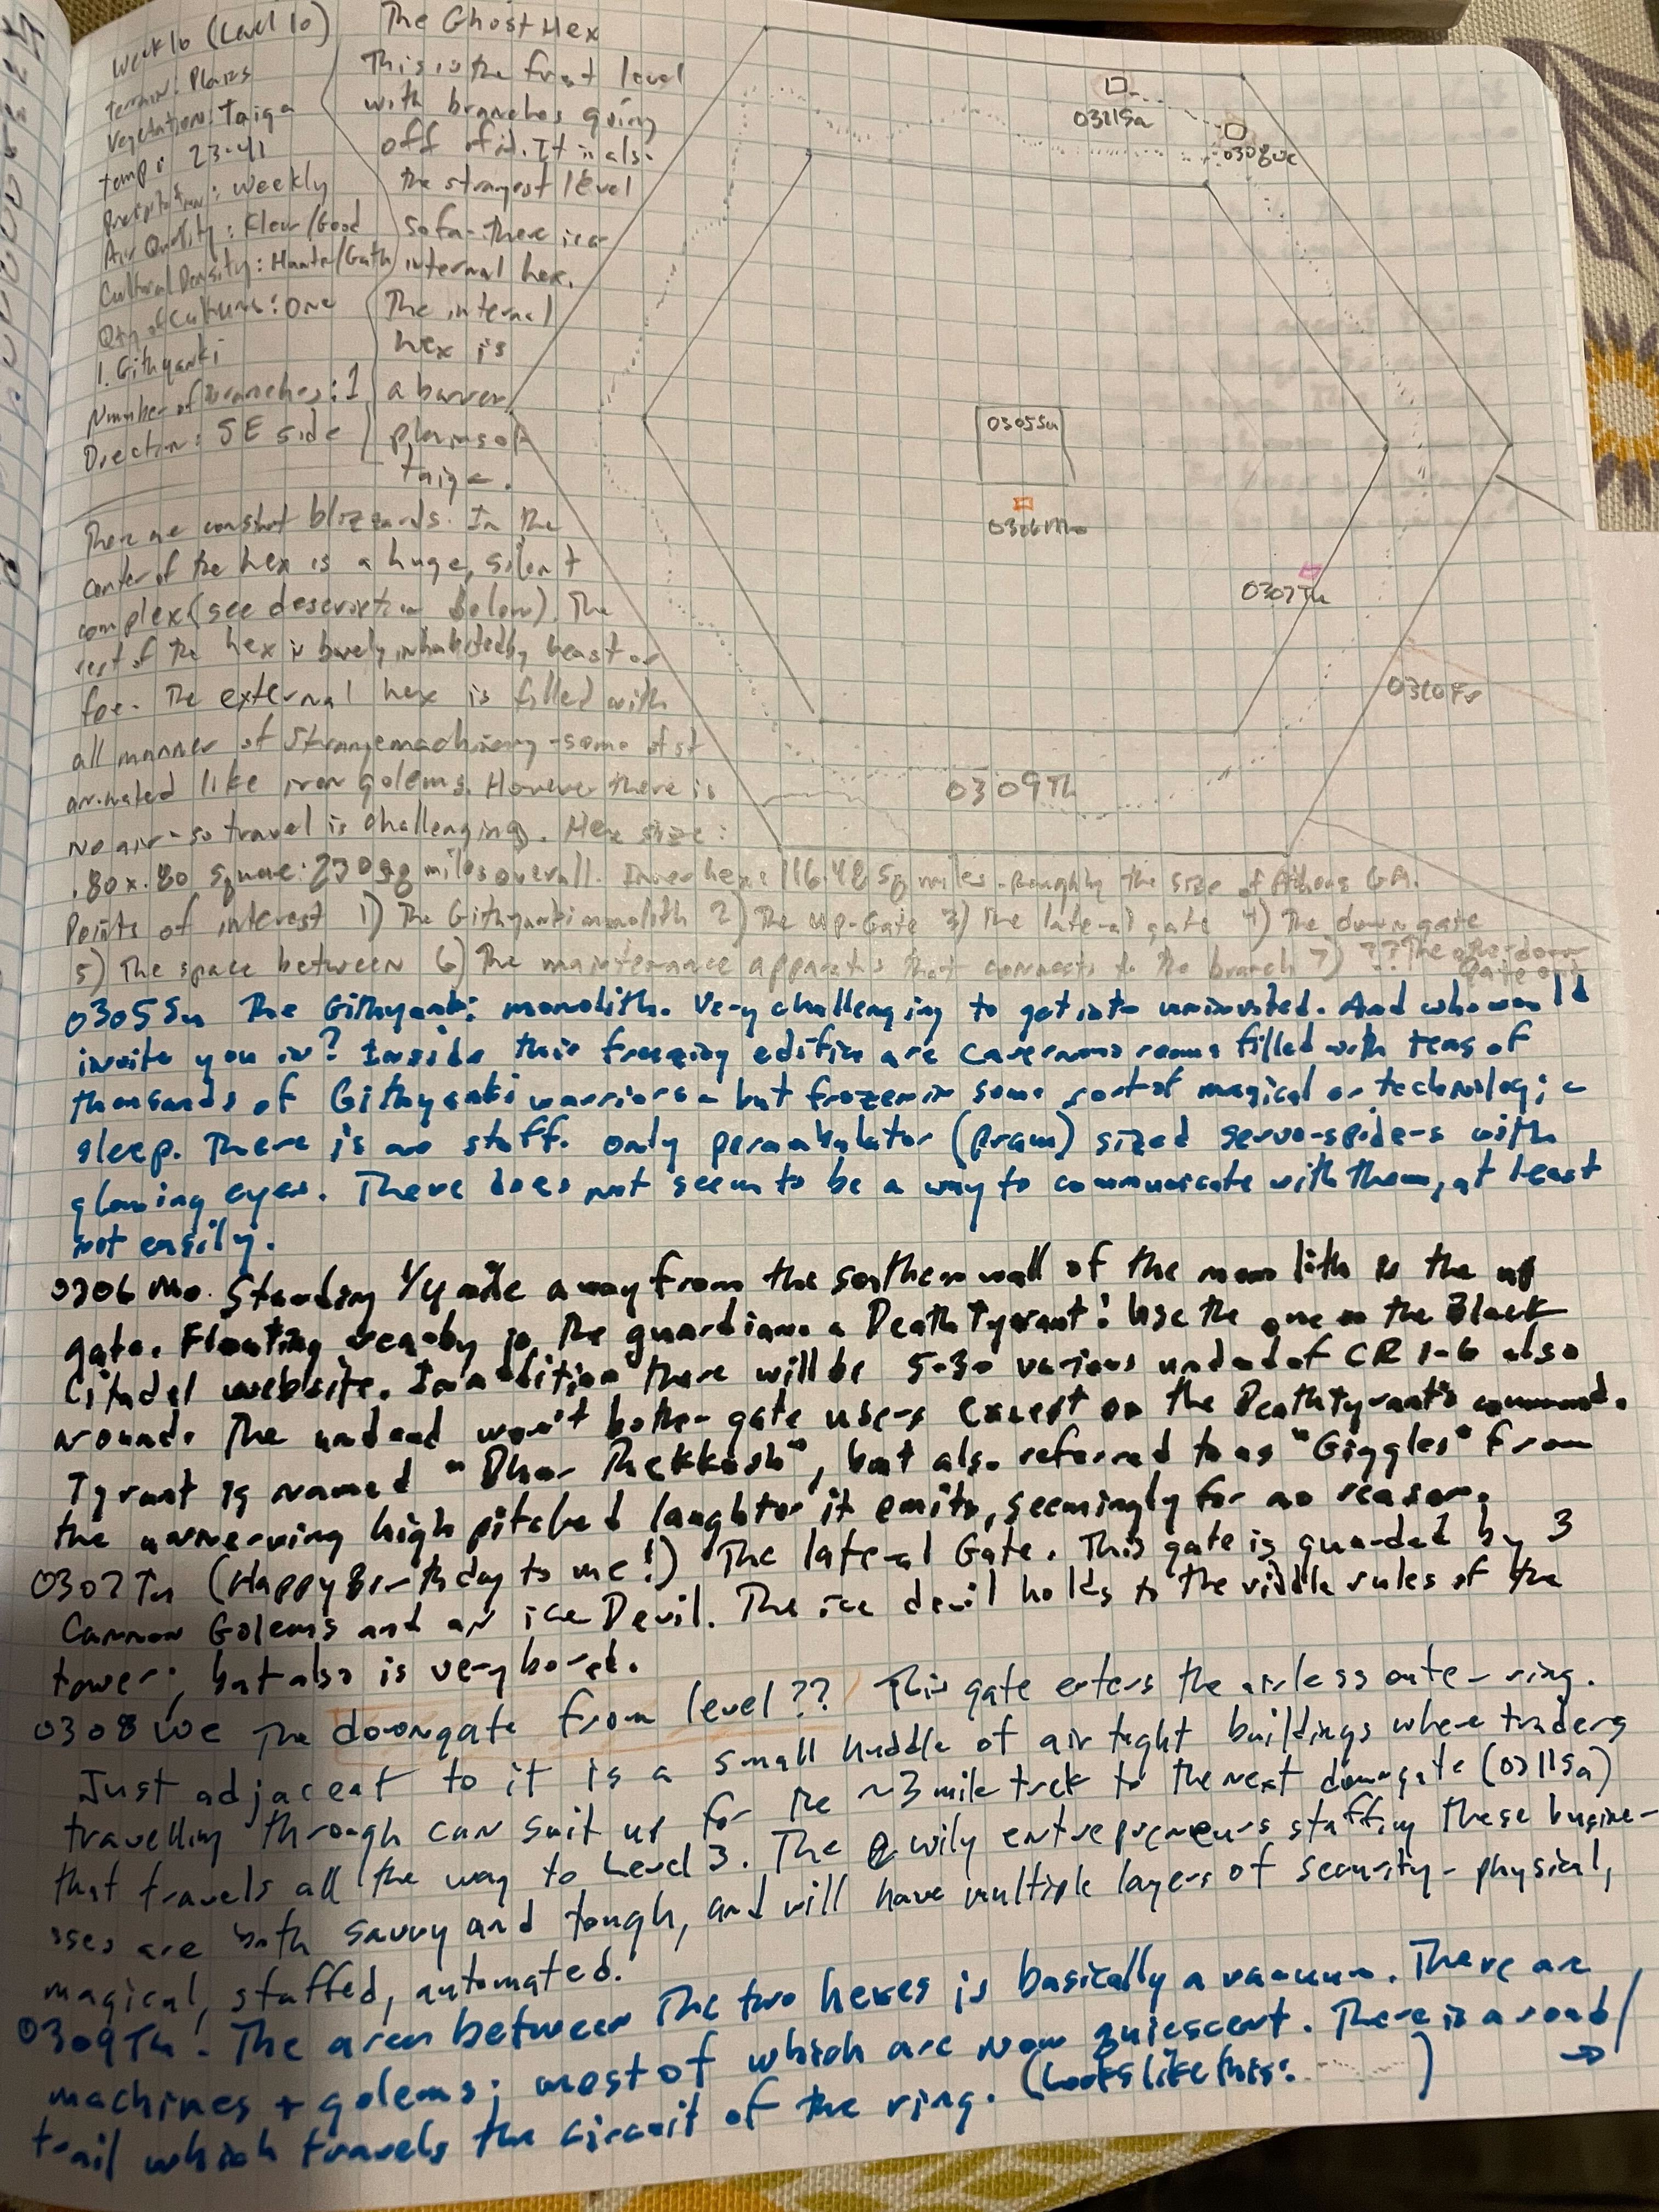 Week 10 (Level 10)
terrain: Plains
Vegetation: Taiga
temp: 23-41
: weekly
Air Quality: Klear/Good
Cultural Density: Hunter/Gath
Qty of Cultures: One
1. Githyanki
Number of Branches: 1
Direction: SE side
The Ghost Hex
This is the first level
with branches going
off of it. It is also
the strangest level
so far - there is a
internal hex.
The internal
hex is
a barren
plains of
taiga.
There are constant blizzards. In the
center of the hex is a huge, silent
complex (see description below). The
rest of the hex is barely inhabited by beast or
foe. The external hex is filled with
all manner of strange machinery - some of it
animated like iron golems. However there is
no air - so travel is challenging. Hex size:
.80 x .80 square: 230 sq miles overall. Inner hex: 116.48 sq miles - roughly the size of Athens GA.
Points of interest 1) The Githyanki monolith 2) The up-Gate 3) The lateral gate 4) The down gate
5) The space between 6) The maintenance apparatus that connects to the branch 7) ?? The other down
gate
0311Sa
0308We
0305Su
0306Mo
0307Tu
0310Fr
0309Th
0305 Su The Githyanki monolith. Very challenging to get into uninvited. And who would
invite you in? Inside this freezing edifice are cavernous rooms filled with tens of
thousands of Githyanki warriors - but frozen in some sort of magical or technologic
sleep. There is no staff. only perambulator (pram) sized servo-spiders with
glowing eyes. There does not seem to be a way to communicate with them, at least
not easily.
0306 Mo. Standing 1/4 mile away from the southern wall of the monolith is the up
gate. Floating nearby is the guardian: a Death Tyrant! Use the one on the Black
Citadel website. In addition there will be 5-30 various undead of CR 1-6 also
around. The undead won't bother gate users except on the Death Tyrant's command.
Tyrant is named "Dhar Thekkosh", but also referred to as "Giggles" from
the unnerving high pitched laughter it emits, seemingly for no reason.
0307 Tu (Happy Birthday to me!) The lateral Gate. This gate is guarded by 3
Cannon Golems and an ice Devil. The ice devil holds to the riddle rules of the
tower; but also is very bored.
0308 We The downgate from level ?? This gate enters the airless outer ring.
Just adjacent to it is a small huddle of air tight buildings where traders
travelling through can suit up for the ~3 mile trek to the next downgate (0311Sa)
that travels all the way to Level 3. The wily entrepreneurs staffing these busine-
sses are both savvy and tough, and will have multiple layers of security - physical,
magical, staffed, automated.
0309 Th: The area between the two hexes is basically a vacuum. There are
machines + golems; most of which are now quiescent. There is a road/
trail which travels the circuit of the ring. (Looks like this: ......) →